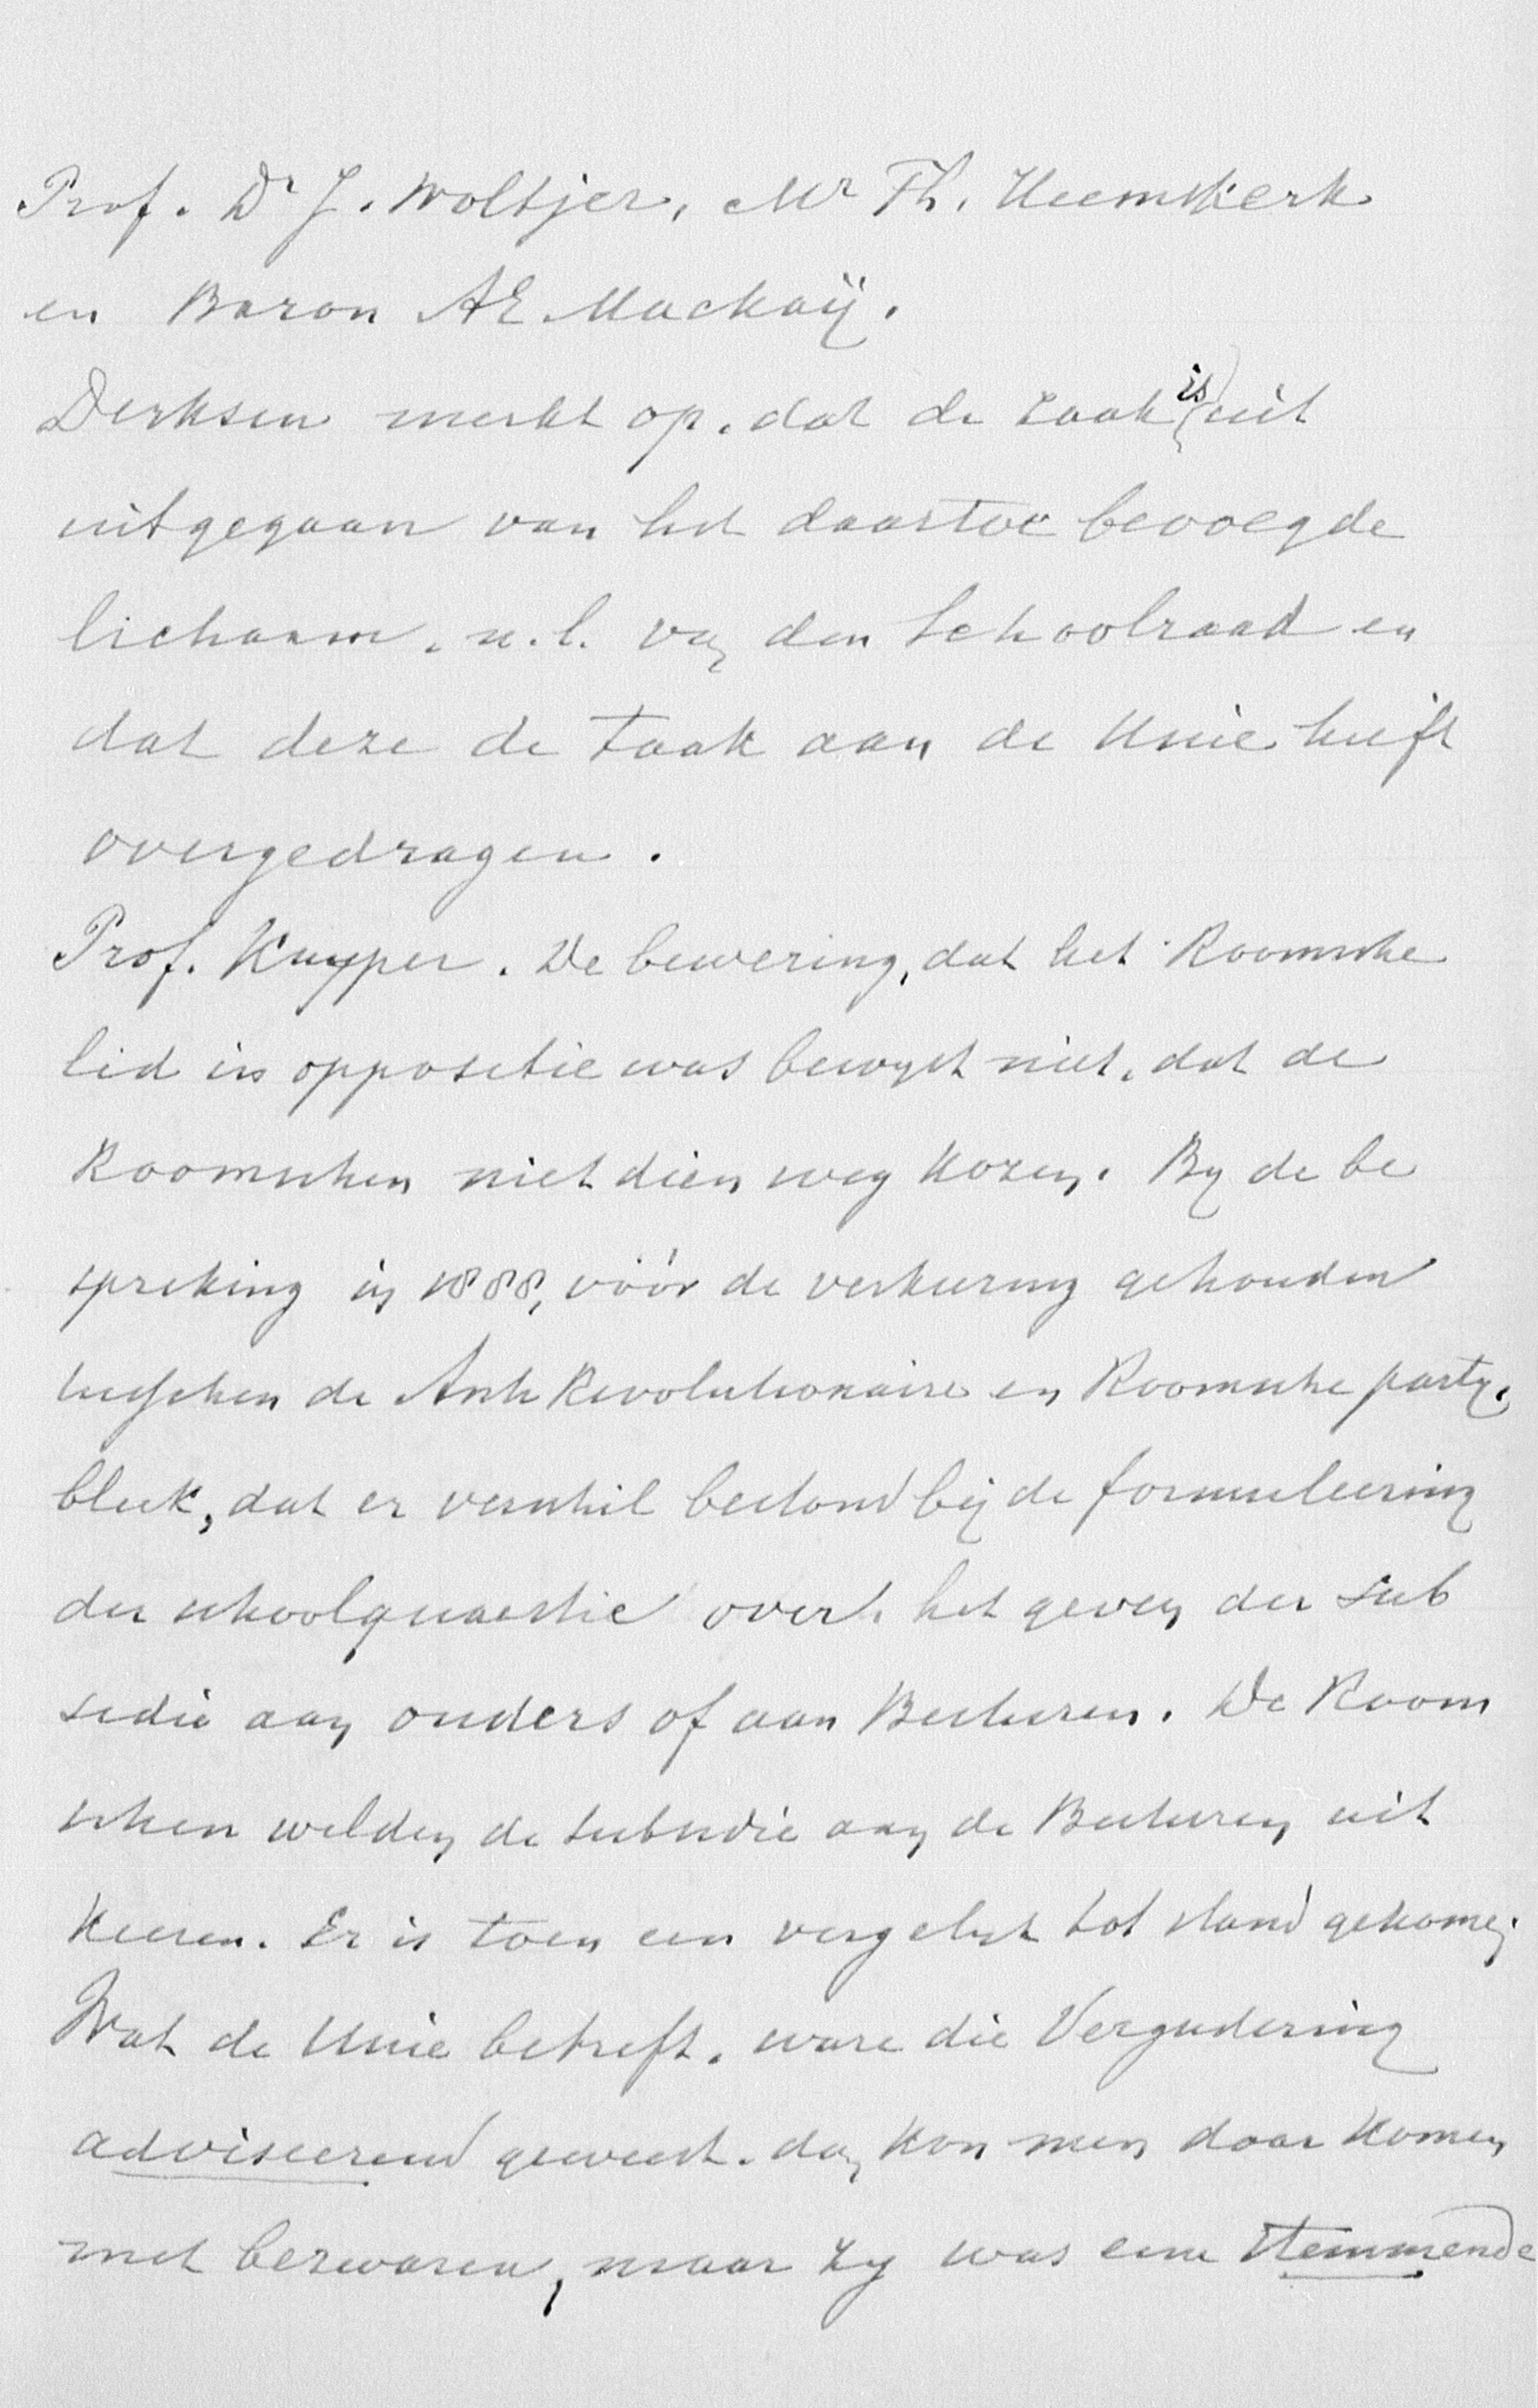 Prof. Dr J. Woltjer, Mr Th. Heemskerk
en Baron AE Mackaÿ.
Derksen merkt op, dat de zaak is uit
uitgegaan van het daartoe bevoegde
lichaam, n.l. van den Schoolraad en
dat deze de taak aan de Unie heeft
overgedragen.
Prof. Kuyper. De bewering, dat het Roomsche
lid in oppositie was bewyst niet, dat de
Roomschen niet dien weg kozen. By de be
spreking in 1888, vóór de verkiezing gehouden
tusschen de Anti Revolutionaire en Roomsche party,
bleek, dat er verschil bestond bij de formuleering
der schoolquaestie over het geven der sub
sidie aan ouders of aan Besturen. De Room
schen wilden de subsidie aan de Besturen uit
keeren. Er is toen een vergelyk tot stand gekomen.
Wat de Unie betreft, ware die Vergadering
adviseerend geweest, dan kon men daar komen
met bezwaren, maar zy was eene stemmende